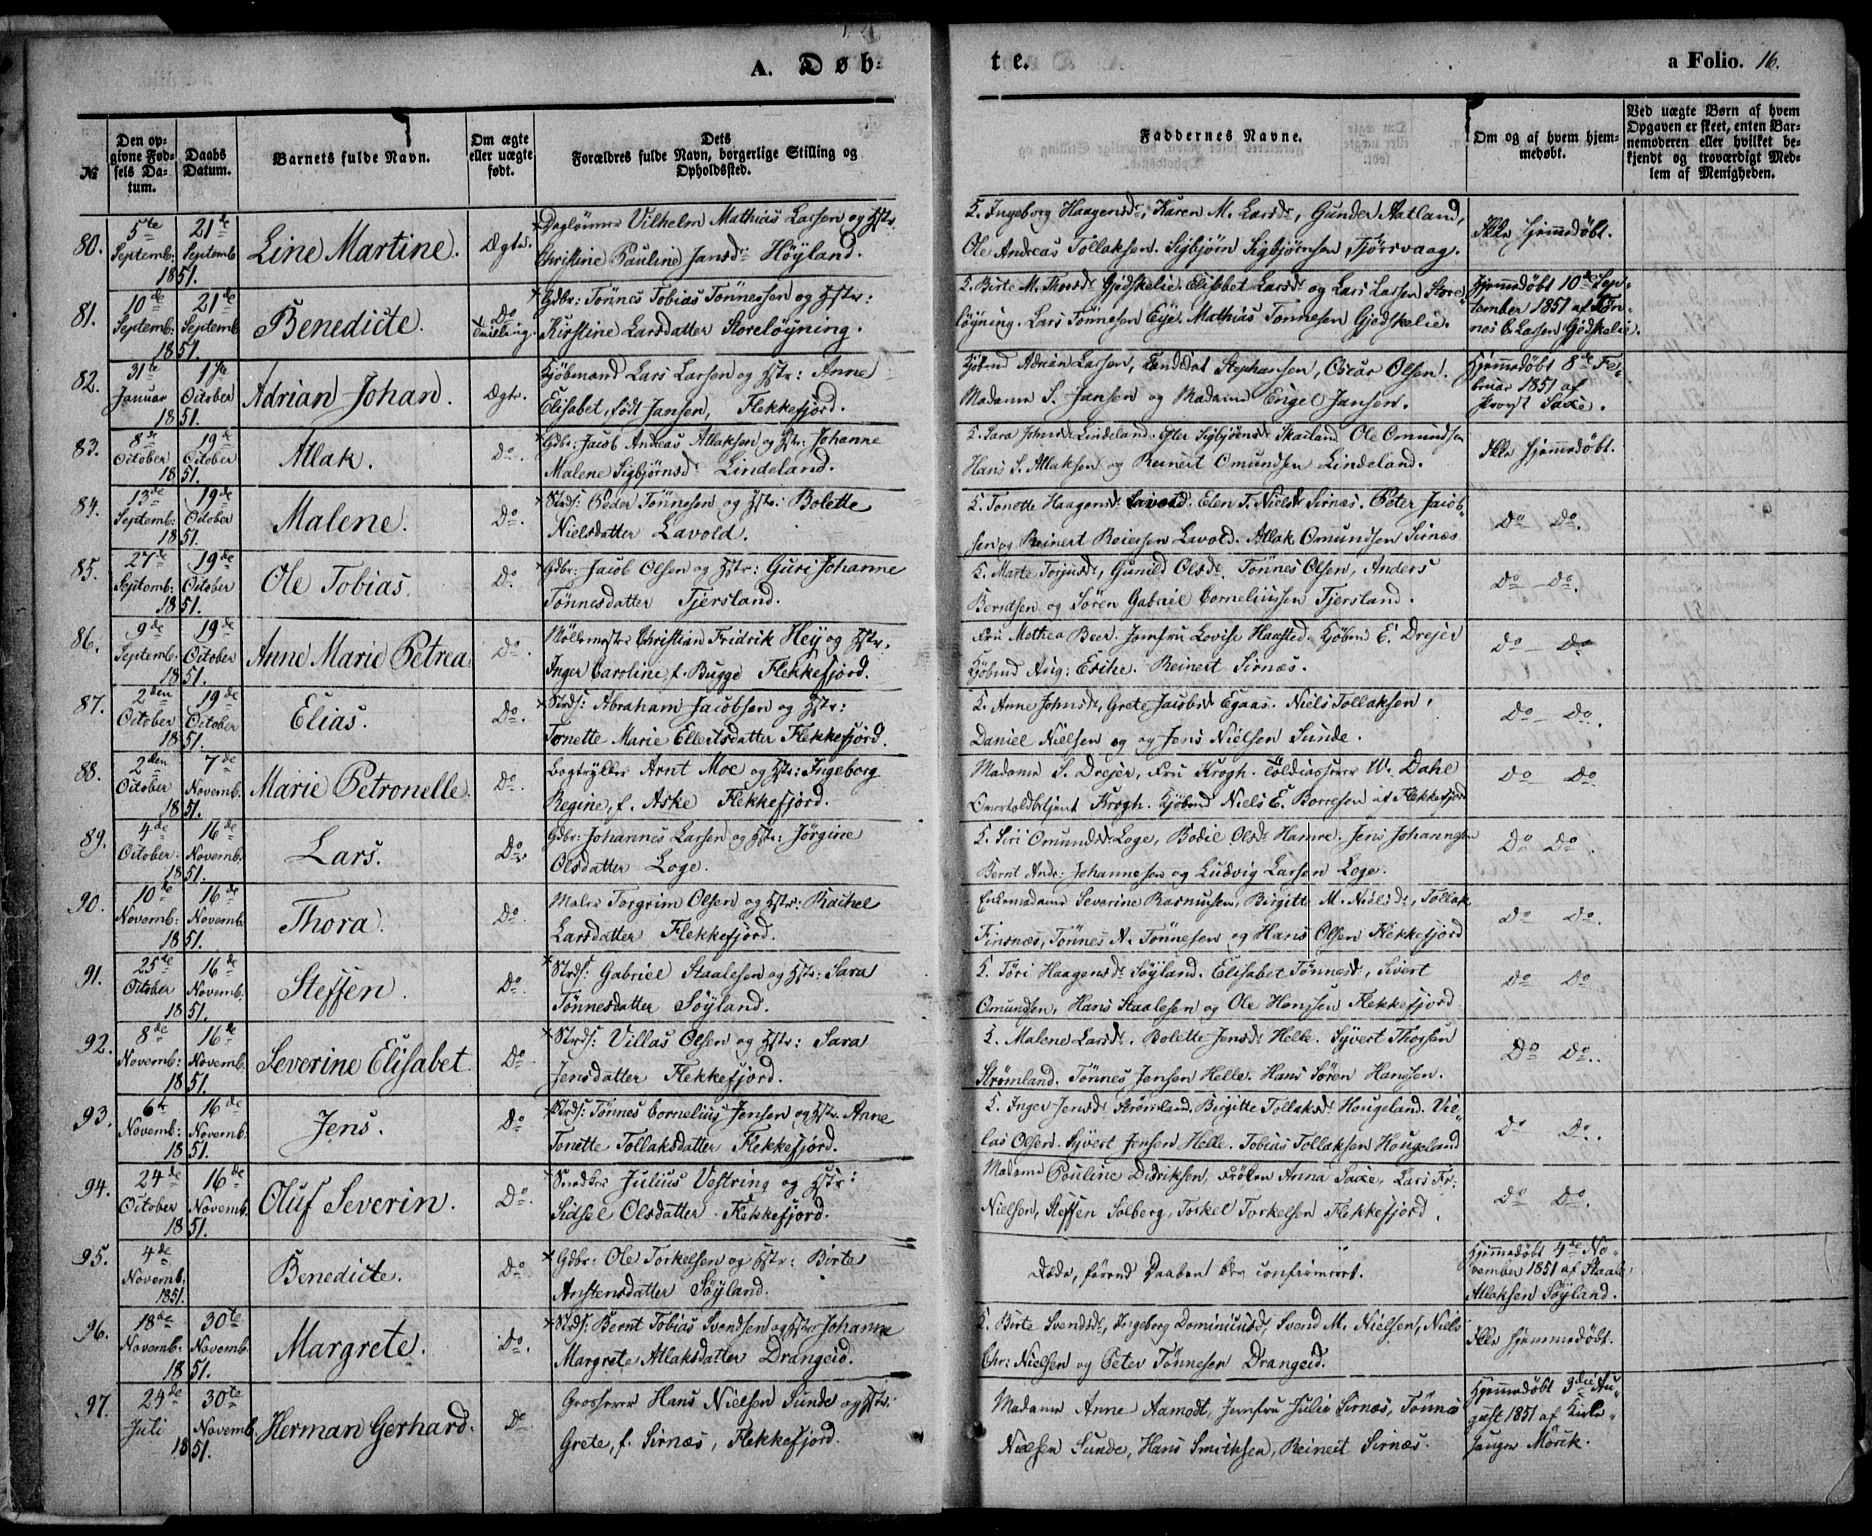 A. Døb-
te.
a Folio. 16.
№
Den op-
givne Fød-
sels Da-
tum.
Daabs
Datum.
Barnets fulde Navn.
Om ægte
eller uægte
født.
Dets
Forældres fulde Navn, borgerlige Stilling og
Opholdssted.
Faddernes Navne.
Om og af hvem hjem-
medøbt.
Ved uægte Børn af hvem
Opgaven er skeet, enten Bar-
nemoderen eller hvilket be-
kjendt og troværdigt Med-
lem af Menigheden.
80. 5te Septemb. 1851. 21de Septemb. Line Martine. Ægte.
× Daglønner Vilhelm Mathias Larsen og Hstr.
Christine Pauline Jansd: Høyland.
K. Ingeborg Haagensd:, Karen M. Larsd:, Gunder Aatland,
Ole Andreas Tollaksen. Sigbjørn Sigbjørnsen Fjørsvaag.
Ikke hjemmedøbt.
81. 10de Septemb: 1851. 21de Septemb Benedicte. Do Tvilling.
× Gdbr: Tönnes Tobias Tönnessen og Hstr:
Kirstine Larsdatter Storeløyning.
K. Birte M. Thorsd: Gjedskelie. Elisbet Larsd: og Lars Larsen Store-
løyning. Lars Tönnesen Eye. Mathias Tönnesen Gjedskelie.
Hjemmedøbt 10de Sep-
tember 1851 af Tön-
nes C. Lassen Gjedskelie.
82. 31te Januar 1851. 1ste October Adrian Johan. Ægte.
Kjöbmand Lars Larsen og Hstr: Anne
Elisabet, født Jansen, Flekkefjord.
Kjöbmd Adrian Larsen, Stephansen, Oscar Olsen.
Madame S. Jansen og Madame Engel Jansen.
Hjemmedøbt 8de Fe-
bruar 1851 af
Provst Saxe.
83. 8de October 1851. 19de October Atlak. Do.
× Gdbr: Jacob Andreas Atlaksen og Hstr: Johanne
Malene Sigbjørnsd: Lindeland.
K. Sara Johnsd: Lindeland. Ester Sigbjörnsd: Skailand. Ole Omundsen
Hans S. Atlaksen og Reinert Omundsen Lindeland.
Ikke hjemmedøbt.
84. 13de Septemb: 1851. 19de October Malene. Do.
× Strds: Peder Tönnesen og Hstr: Bolette
Nielsdatter Lavold.
K. Tonette Haagensd: Lavold. Elen T. Nielsd: Sirnæs. Peter Jacob-
sen og Reinert Reiersen Lavold. Atlak Omundsen Sirnæs
Do Do.
85. 27de Septemb: 1851. 19de October Ole Tobias. Do.
× Gdbr: Jacob Olsen og Hstr: Guri Johanne
Tönnesdatter Tjersland.
K. Marte Torjusd:, Gunild Olsd:. Tönnes Olsen, Anders
Berntsen og Sören Gabriel Corneliussen Tjersland.
Do — Do.
86. 9de Septemb: 1851. 19de October Anne Marie Petrea Do.
Möllemester Christian Fridrik Hey og Hstr.
Inger Caroline, f. Bugge Flekkefjord.
Fru Mathea Beer. Jomfru Lovise Haasted. Kjöbmd E. Drejer
Kjöbmd Aug: Reinert Sirnæs.
Do — Do
87. 2den October 1851. 19de October Elias. Do.
× Strds: Abraham Jacobsen og Hstr:
Tonette Marie Ellertsdatter Flekkefjord.
K. Anne Johnsd:, Grete Jacobsd: Egaas. Niels Tollaksen,
Daniel Nielsen og og Jens Nielsen Sunde.
Do — Do.
88. 2den October 1851. 7de Novemb. Marie Petronelle. Do.
Bogtrykker Arnt Moe og Hstr: Ingeborg
Regine, f. Aske Flekkefjord.
Madame S. Drejer, Fru Krogh. Toldkasserer W. Dahl
Overtoldbetjent Krogh. Kjöbmd Niels E. Borresen af Flekkefjord
Do Do.
89. 4de October. 1851. 16de Novemb. Lars. Do.
Gdbr: Johannes Larsen og Hstr: Jörgine
Olsdatter Loge.
K. Siri Omundsd: Loge, Bodil Olsd: Hamre. Jens Johannesen
Bernt Andr: Johannesen og Ludvig Larsen Loge.
Do Do.
90. 10de Novemb: 1851. 16de Novemb. Thora. Do.
Maler Torgrim Olsen og Hstr: Rachel
Larsdatter Flekkefjord.
Enkemadame Severine Rasmussen, Birgitte M. Nielsd:, Tollak
Finsnæs, Tönnes N. Tönnesen og Hans Olsen Flekkefjord
Do Do.
91. 25de October 1851. 16de Novemb. Steffen. Do.
× Strds: Gabriel Staalesen og Hstr: Sara
Tönnesdatter Söyland.
K. Töri Haagensd: Söyland. Elisabet Tönnesd:, Sivert
Omundsen, Hans Staalesen og Ole Hansen Flekkefjord
Do Do
92. 8de Novemb: 1851. 16de Novemb. Severine Elisabet. Do.
× Strds: Villas Olsen og Hstr: Sara
Jensdatter Flekkefjord.
K. Malene Larsd:. Bolette Jensd: Helle. Syvert Thorsen
Strømland. Tönnes Jensen Helle. Hans Sören Hansen.
Do Do.
93. 6te Novemb: 1851. 16de Novemb. Jens. Do
× Strds: Tönnes Cornelius Jensen og Hstr. Anne
Tonette Tollaksdatter Flekkefjord.
K. Inger Jensd: Strömland. Birgitte Tollaksd: Hougeland. Vil-
las Olsen. Syvert Jensen Helle. Tobias Tollaksen Hougeland
Do Do.
94. 24de October 1851. 16de Novemb. Oluf Severin. Do.
× Snedker Julius Vestring og Hstr:
Sidsel Olsdatter Flekkefjord.
Madame Pauline Didriksen, Frøken Anna Saxe, Lars Fr:
Nielsen, Steffen Solberg, Torkel Torkelsen Flekkefjord.
Do Do
95. 4de Novemb. 1851. Benedicte. Do
× Gdbr: Ole Torkelsen og Hstr: Birte
Anstensdatter Söyland.
Døde, förend Daaben blev confirmeret.
Hjemmedøbt 4de No-
vember 1851 af Staale
Atlaksen Söyland.
96. 18de Novemb: 1851. 30te Novemb. Margrete. Do.
× Strds: Bernt Tobias Svendsen og Hstr Johanne
Margrete Atlaksdatter Drangeid.
K. Birte Svendsd:, Ingeborg Dominicusd:, Svend M. Nielsen, Niels
Chr: Nielsen og Peter Tönnesen Drangeid.
Ikke hjemmedøbt.
97. 24de Juli 1851. 30te Novemb. Herman Gerhard. Do
Grosserer Hans Nielsen Sunde og Hstr:
Grete, f. Sirnæs, Flekkefjord.
Madame Anne Aamodt, Jomfru Julie Sirnæs, Tönnes
Nielsen Sunde, Hans Smithsen, Reinert Sirnæs.
Hjemmedøbt 3die Au-
gust 1851 af Kirke-
sanger Mörck.